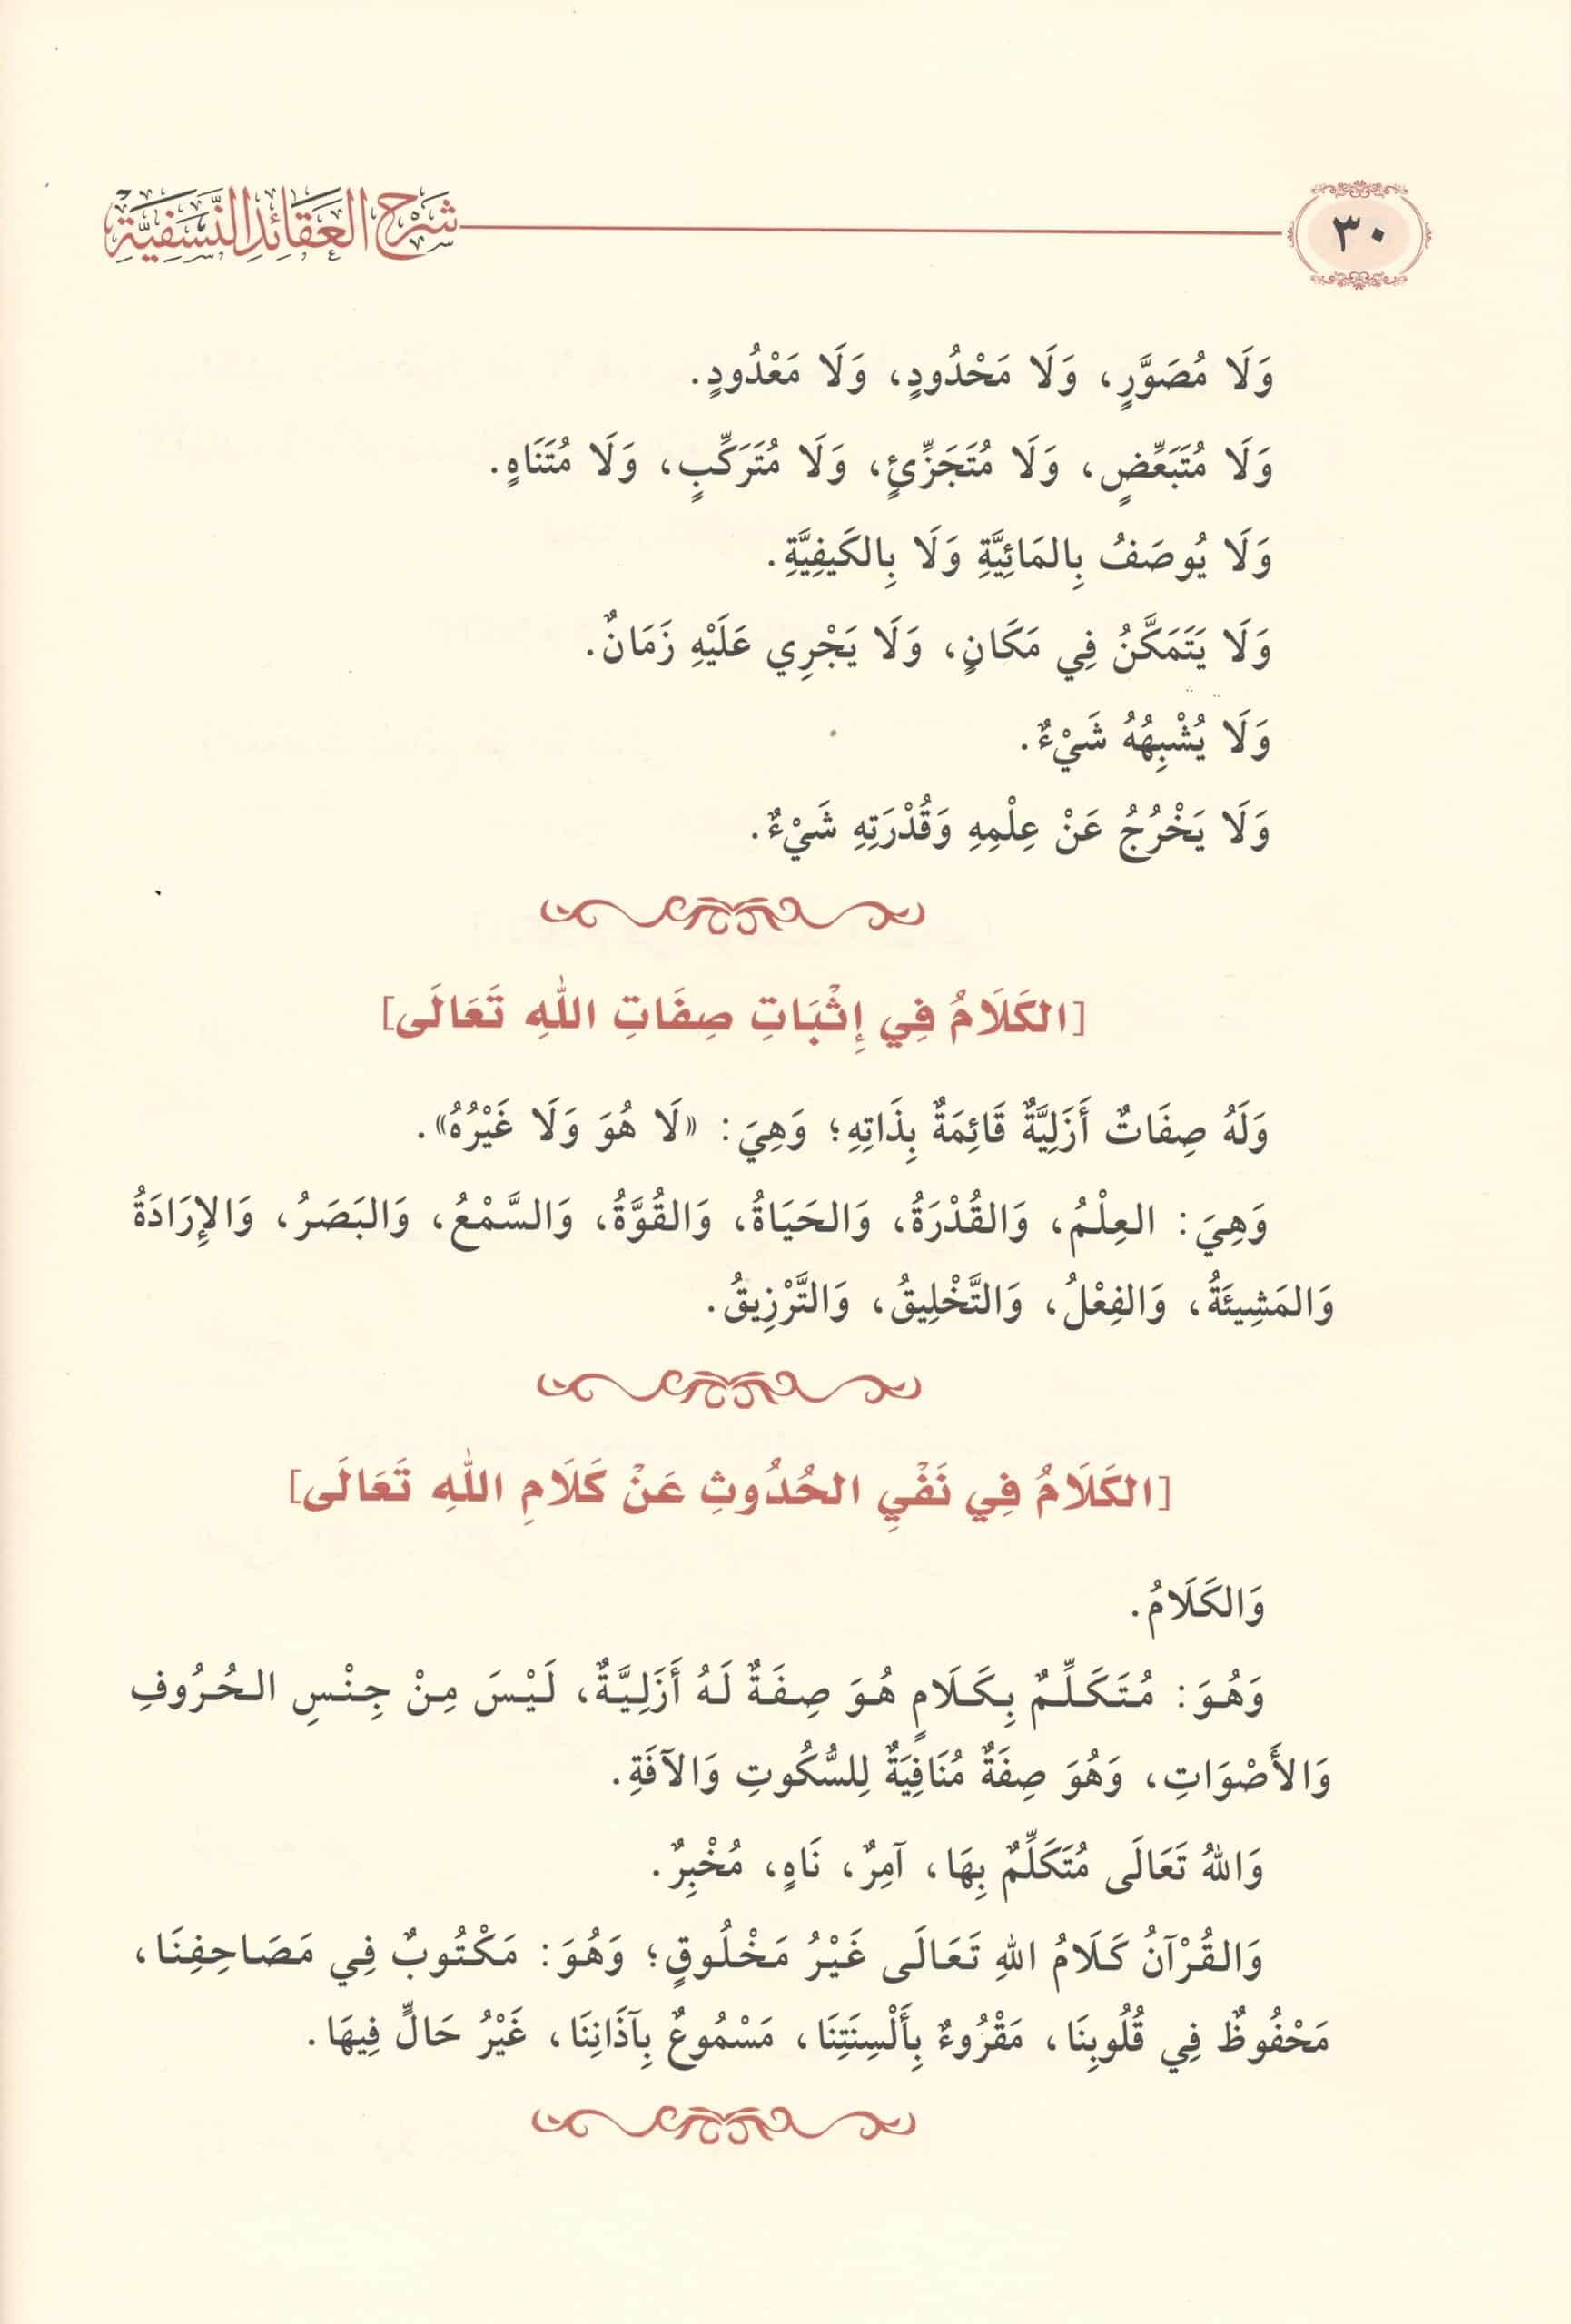 ٣٠
شَرْحُ العَقَائِدِ النَّسَفِيَّةِ
وَلَا مُصَوَّرٍ، وَلَا مَحْدُودٍ، وَلَا مَعْدُودٍ.
وَلَا مُتَبَعِّضٍ، وَلَا مُتَجَزِّئٍ، وَلَا مُتَرَكِّبٍ، وَلَا مُتَنَاهٍ.
وَلَا يُوصَفُ بِالمَائِيَّةِ وَلَا بِالكَيفِيَّةِ.
وَلَا يَتَمَكَّنُ فِي مَكَانٍ، وَلَا يَجْرِي عَلَيْهِ زَمَانٌ.
وَلَا يُشْبِهُهُ شَيْءٌ.
وَلَا يَخْرُجُ عَنْ عِلْمِهِ وَقُدْرَتِهِ شَيْءٌ.
[الكَلَامُ فِي إِثْبَاتِ صِفَاتِ اللهِ تَعَالَى]
وَلَهُ صِفَاتٌ أَزَلِيَّةٌ قَائِمَةٌ بِذَاتِهِ؛ وَهِيَ: «لَا هُوَ وَلَا غَيْرُهُ».
وَهِيَ: العِلْمُ، وَالقُدْرَةُ، وَالحَيَاةُ، وَالقُوَّةُ، وَالسَّمْعُ، وَالبَصَرُ، وَالإِرَادَةُ
وَالمَشِيئَةُ، وَالفِعْلُ، وَالتَّخْلِيقُ، وَالتَّرْزِيقُ.
[الكَلَامُ فِي نَفْيِ الحُدُوثِ عَنْ كَلَامِ اللهِ تَعَالَى]
وَالكَلَامُ.
وَهُوَ: مُتَكَلِّمٌ بِكَلَامٍ هُوَ صِفَةٌ لَهُ أَزَلِيَّةٌ، لَيْسَ مِنْ جِنْسِ الحُرُوفِ
وَالأَصْوَاتِ، وَهُوَ صِفَةٌ مُنَافِيَةٌ لِلسُّكُوتِ وَالآفَةِ.
وَاللهُ تَعَالَى مُتَكَلِّمٌ بِهَا، آمِرٌ، نَاهٍ، مُخْبِرٌ.
وَالقُرْآنُ كَلَامُ اللهِ تَعَالَى غَيْرُ مَخْلُوقٍ؛ وَهُوَ: مَكْتُوبٌ فِي مَصَاحِفِنَا،
مَحْفُوظٌ فِي قُلُوبِنَا، مَقْرُوءٌ بِأَلْسِنَتِنَا، مَسْمُوعٌ بِآذَانِنَا، غَيْرُ حَالٍّ فِيهَا.